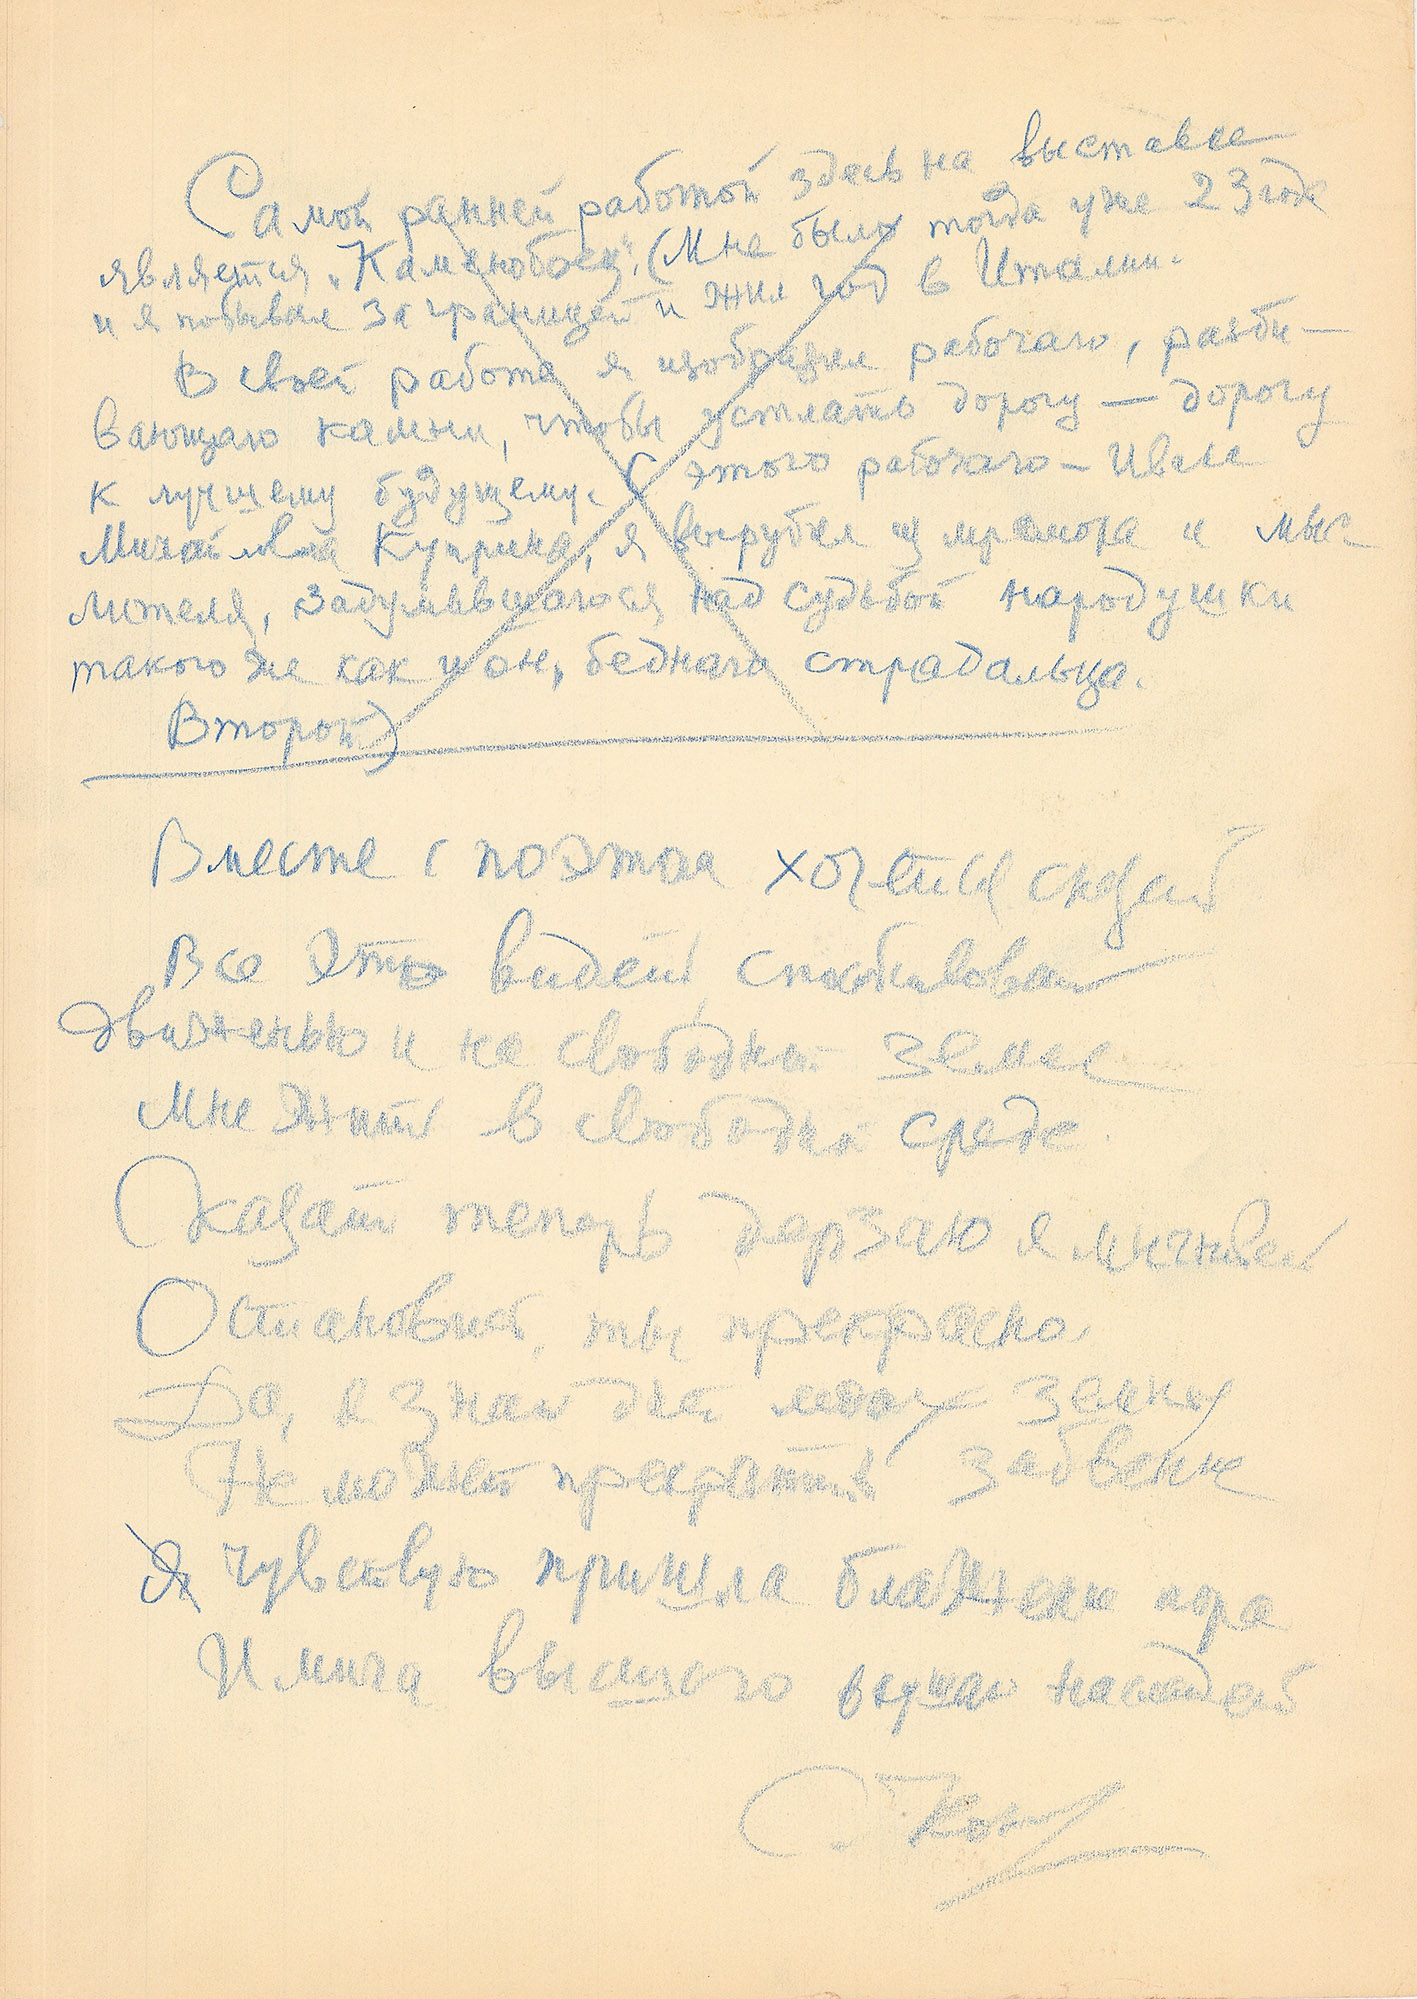 Самой ранней работой здесь на выставке
является „Каменобоец“. (Мне было тогда уже 23 года
и я побывал за границей и жил год в Италии.
В своей работе я изобразил рабочаго, разби-
вающаго камни, чтобы устлать дорогу — дорогу
к лучшему будущему. С этого рабочаго — Ивана
Михайловича Куприна, я вырубил из мрамора и мыс
лителя, задумывшагося над судьбой народушки
такого же как и он, беднаго страдальца.
Второй)
Вместе с поэтом хочется сказать
Все это видеть, способствовать
движенью и на свободной земле
Мне жить в свободной среде
Сказать теперь дерзаю я мгновен
Остановись, ты прекрасно
Да, и знай дней моих земных
Не может прекратить забвенье
Я чувствую пришла блаженн пора
И мига высшаго вкушаю
С. Кон